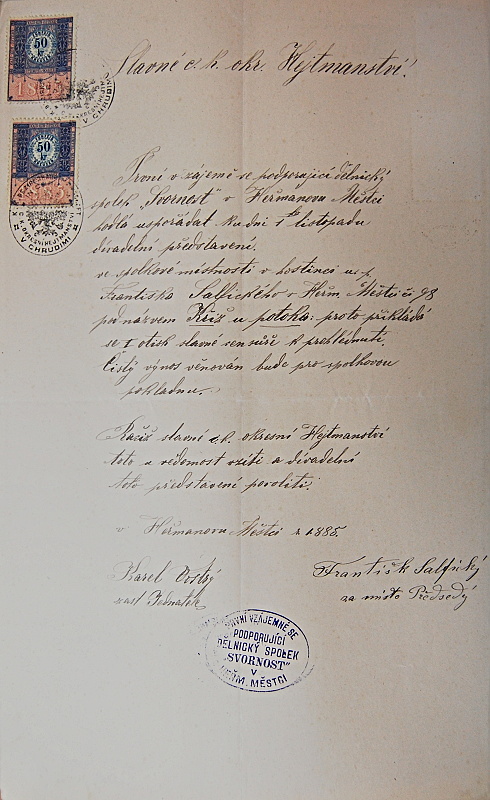 50
kr
18
50
kr
V CHRUDIMI
V CHRUDIMI
Slavné c. k. okr. Hejtmanství!
První v zájemě se podporující dělnický
spolek „Svornost" v Heřmanově Městci
hodlá uspořádat ku dni 1ho listopadu
divadelní představení.
ve spolkové místnosti v hostinci u p.
Františka Salfického v Heřm. Městci čís 98
pod názvem Kříž u potoka: proto přikládá
se 1 otisk slavné censuře k prohlédnutí.
Čistý výnos věnován bude pro spolkovou
pokladnu.
Račiž slavné c. k. okresní Hejtmanství
toto u vědomost vzíti a divadelní
toto představení povoliti.
v Heřmanovu Městci r. 1885.
Karel Ostrý
zast Jednatel
František Salfický
za místo Předsedy
PRVNÍ VZÁJEMNĚ SE
PODPORUJÍCÍ
DĚLNICKÝ SPOLEK
„SVORNOST"
V
HEŘM. MĚSTCI